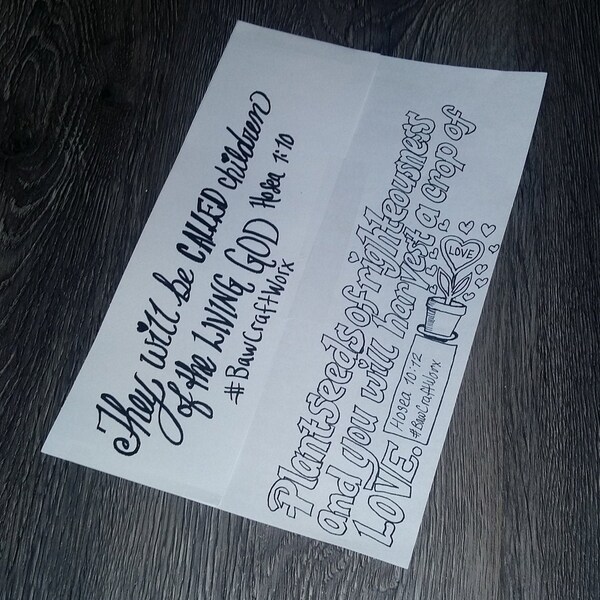 They will be CALLED children
of the LIVING GOD Hosea 1:10
#BawCraftWorx
Plant seeds of righteousness
and you will harvest a crop of
LOVE.
Hosea 10:12
#BawCraftWorx
LOVE